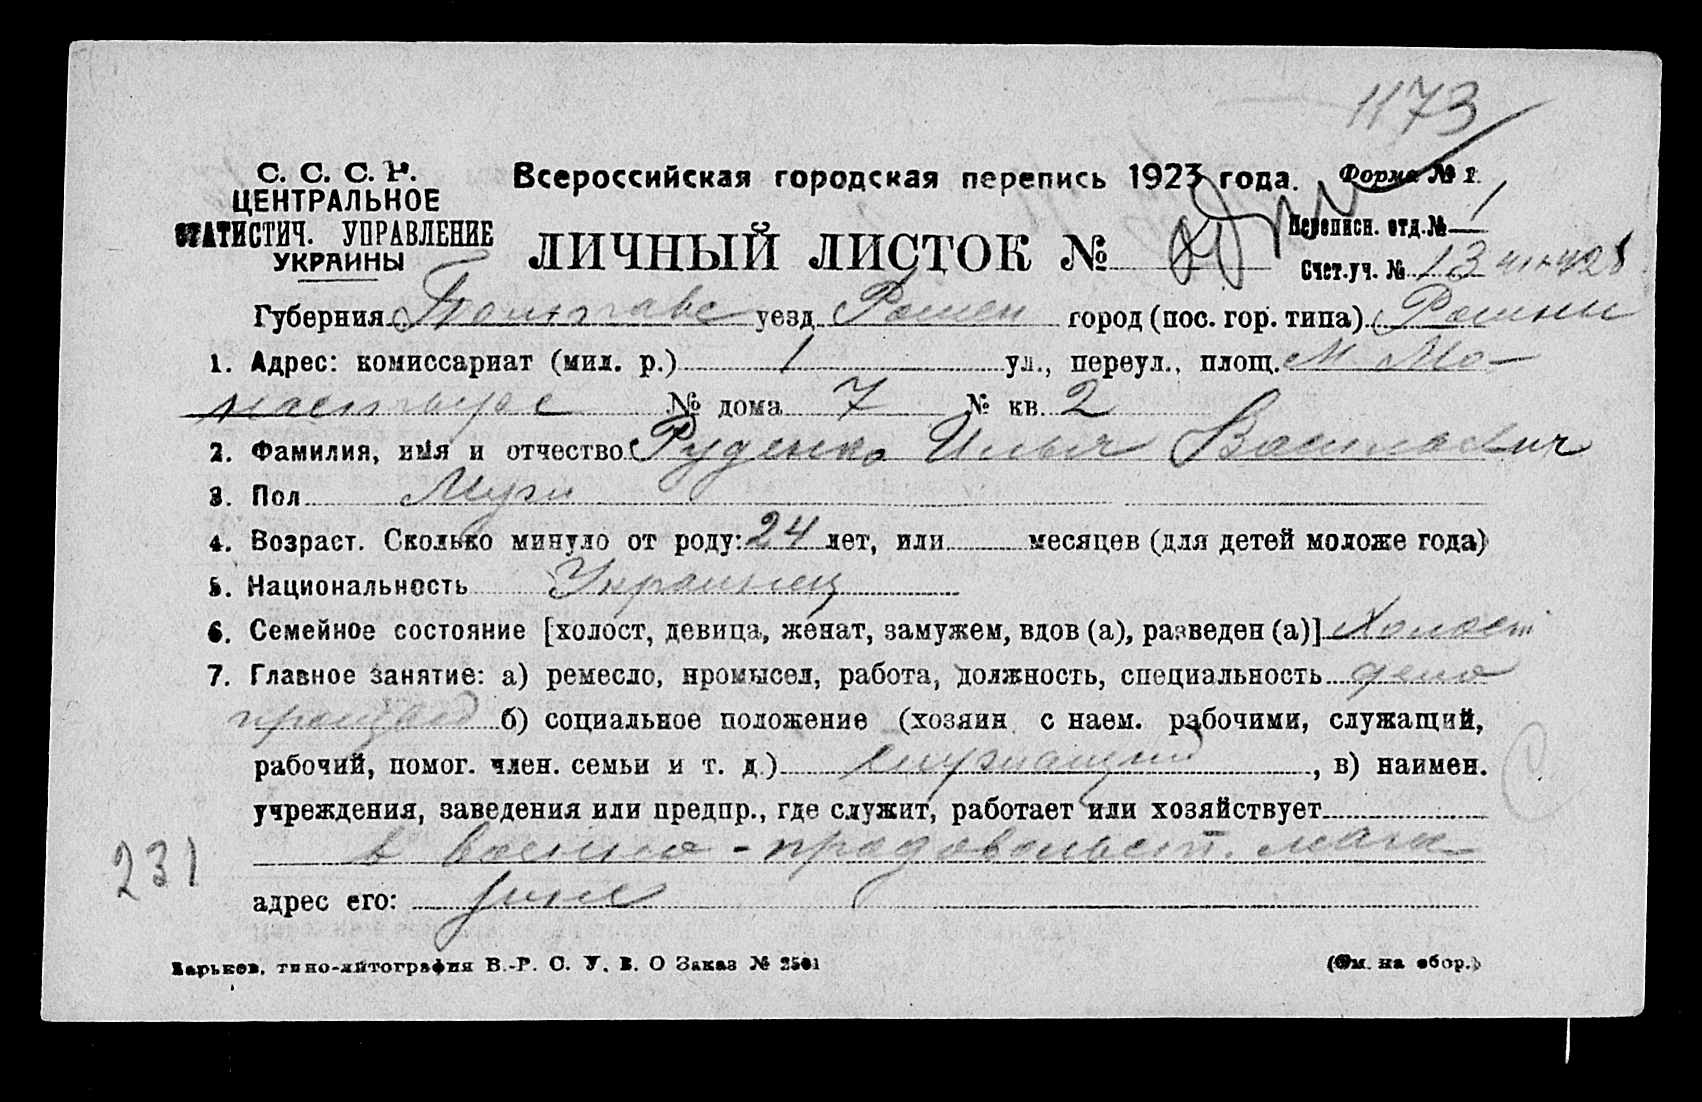 1173
С. С. С. Р.
ЦЕНТРАЛЬНОЕ
СТАТИСТИЧ. УПРАВЛЕНИЕ
УКРАИНЫ
Всероссийская городская перепись 1923 года.
Форма № 1.
ЛИЧНЫЙ ЛИСТОК №
Переписн. отд. № 1
Счет. уч. № 13
Губерния Полтавс уезд Ромен город (пос. гор. типа) Ромны
1. Адрес: комиссариат (мил. р.) 1 ул., переул., площ. М Мо-
настырс № дома 7 № кв. 2
2. Фамилия, имя и отчество Руденко Илья Васильевич
3. Пол Муж
4. Возраст. Сколько минуло от роду: 24 лет, или месяцев (для детей моложе года)
5. Национальность Украинец
6. Семейное состояние [холост, девица, женат, замужем, вдов (а), разведен (а)] Холост
7. Главное занятие: а) ремесло, промысел, работа, должность, специальность дело
производ б) социальное положение (хозяин с наем. рабочими, служащий,
рабочий, помог. член. семьи и т. д.) служащий, в) наимен.
учреждения, заведения или предпр., где служит, работает или хозяйствует
в военно-продовольст. мага
адрес его: зине
231
Харьков, типо-литография В.-Р. С. У. В. О Заказ № 2501
(См. на обор.)